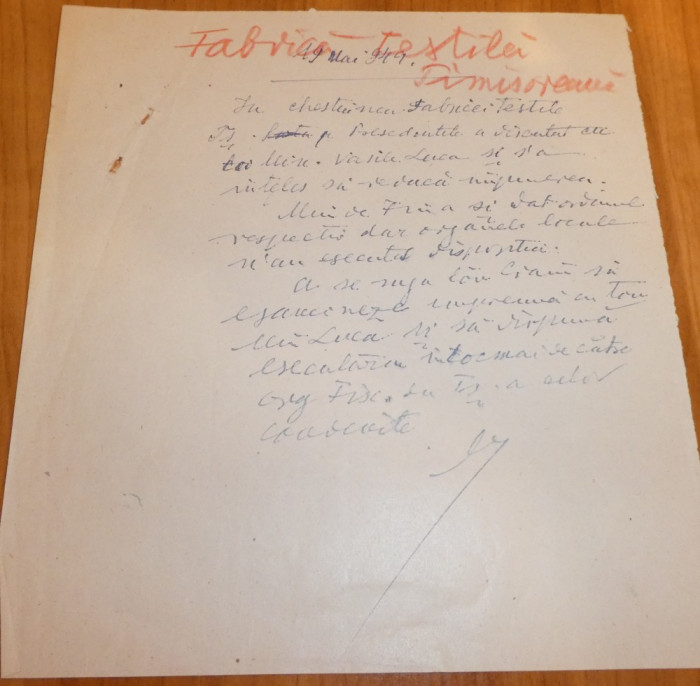 Fabrică textilă
Timisoreană
19 Mai 949.
In chestiunea Fabricei Textile
Presedintele a discutat cu
tov Min. Vasile Luca și s'a
înțeles să reducă impunerea.
Min de Fin a si dat ordinul
respectiv dar organele locale
n'au executat dispoziția.
A se ruga tov să
examineze impreună cu tov
Min Luca și să dispună
executarea întocmai de către
org Fisc. din a celor
convenite